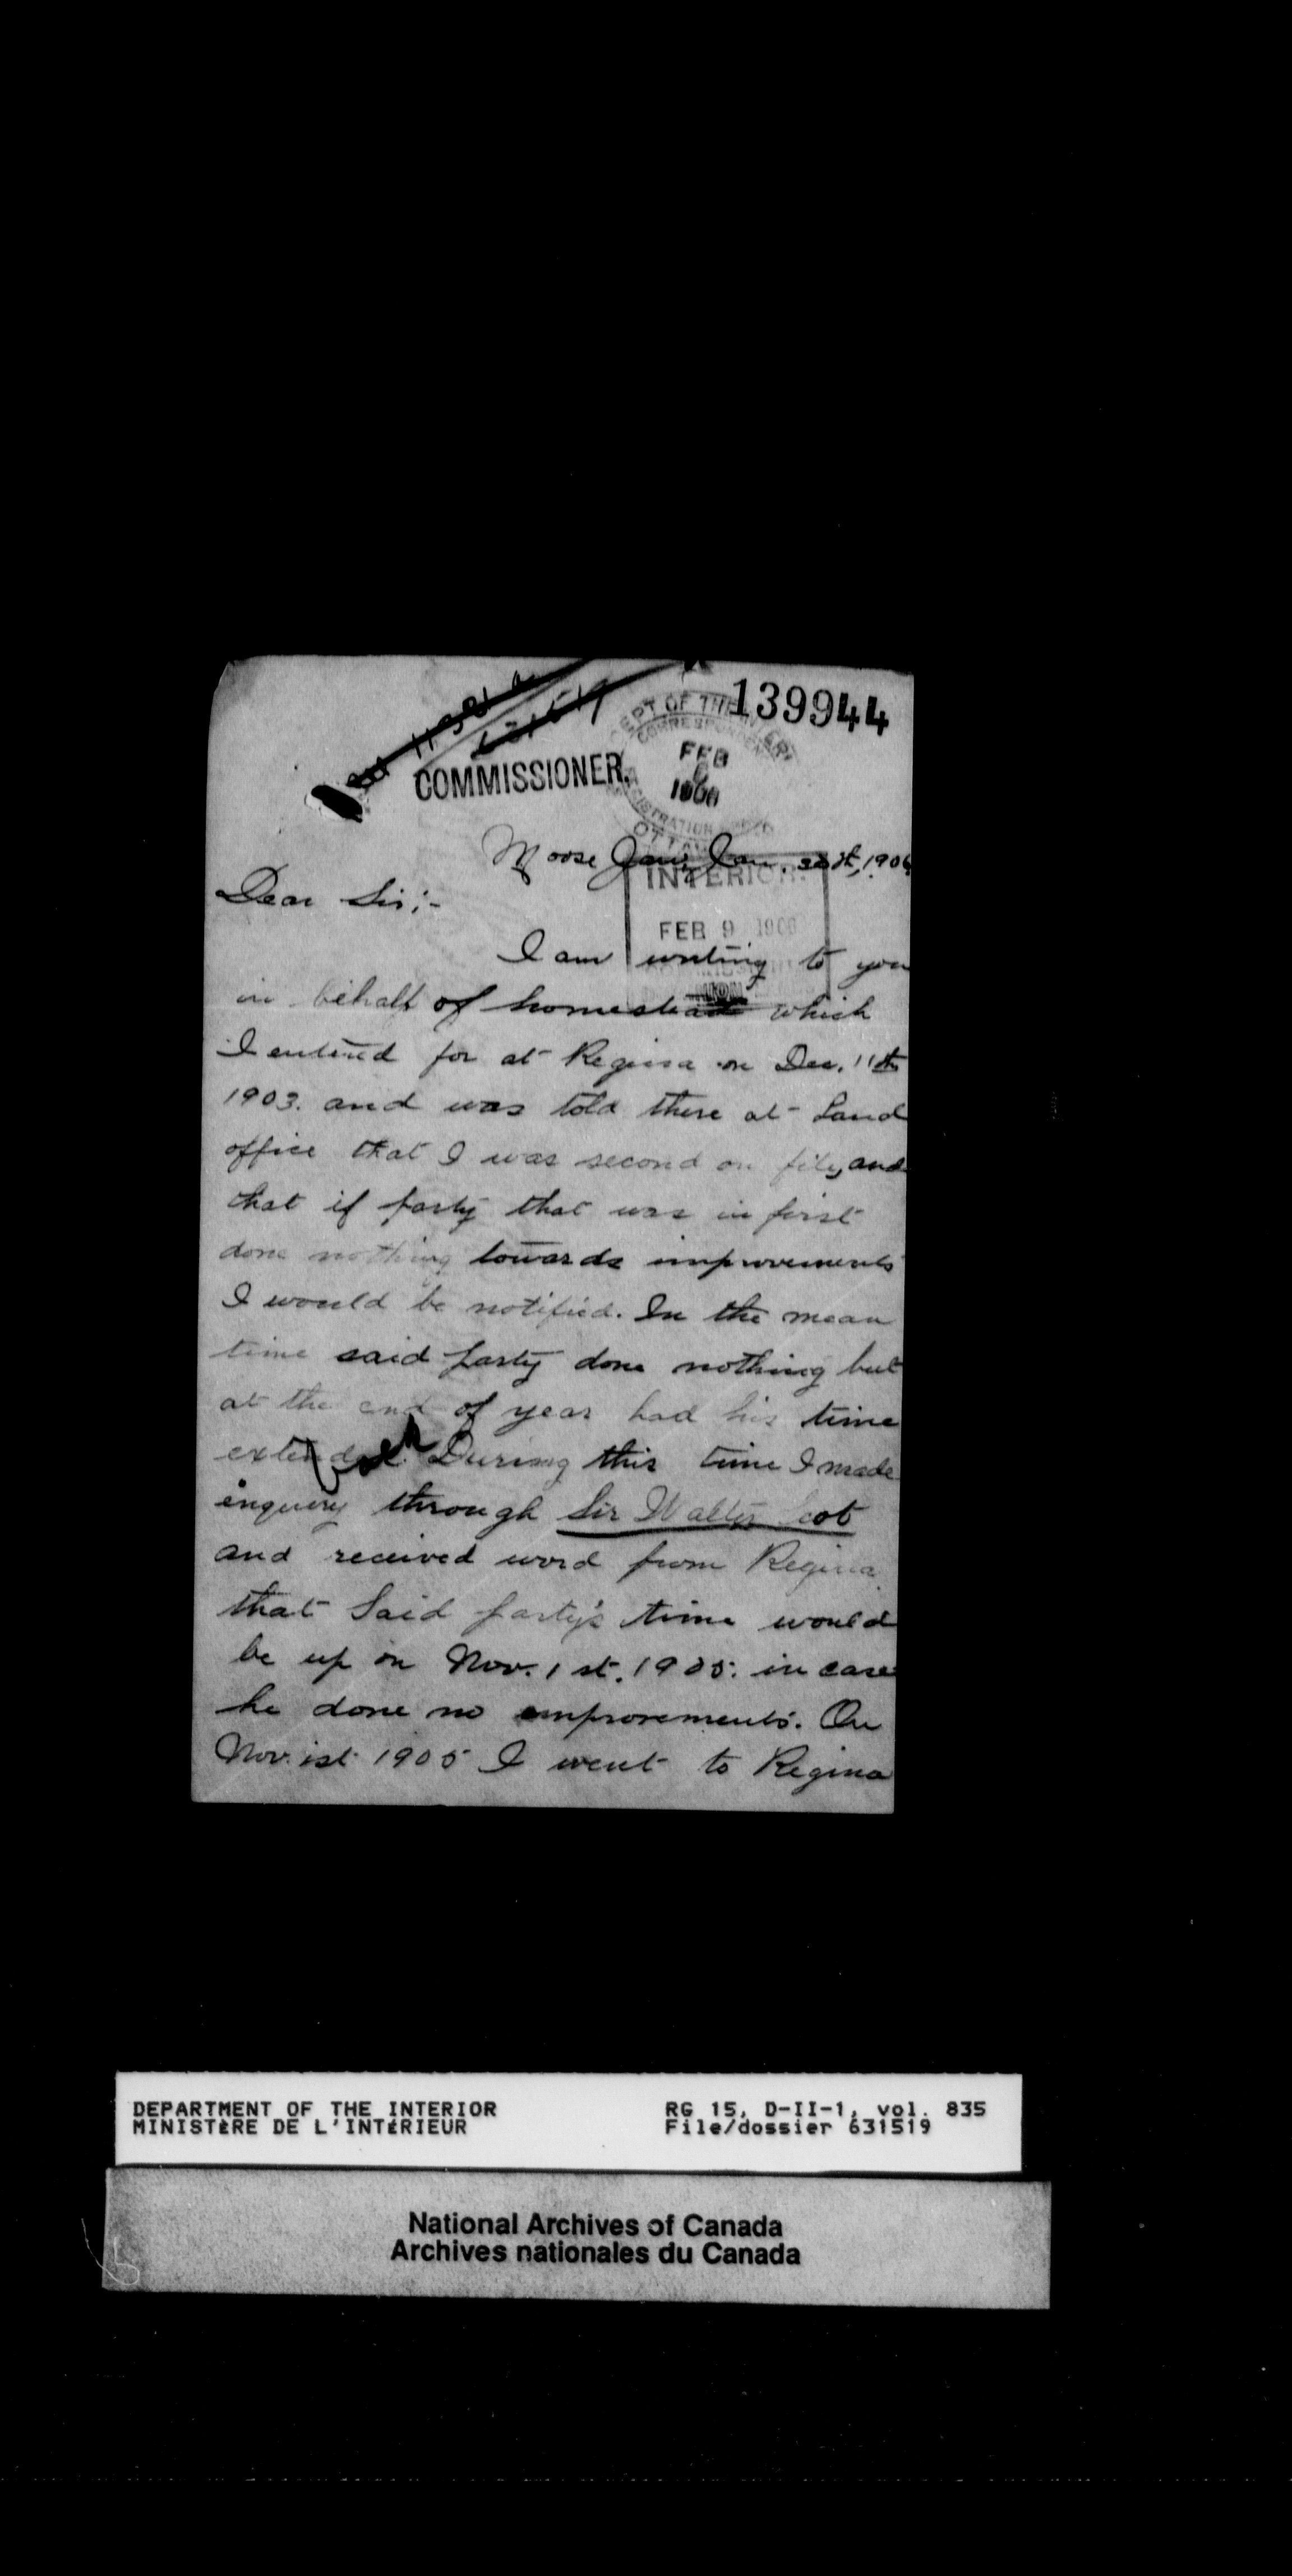 139944
631519
COMMISSIONER,
DEPT OF THE INTERIOR
FEB
OTTAWA
Moose Jaw, Jan. 1906
INTERIOR.
Dear Sir:-
FEB 9 1906
I am writing to you
in behalf of homestead which
I entered for at Regina on Dec. 11th
1903. and was told there at Land
office that I was second on file, and
that if party that was in first
done nothing towards improvements
I would be notified. In the mean
time said party done nothing but
at the end of year had his time
extended. During this time I made
enquiry through Sir Walter Scot
and received word from Regina
that Said party's time would
be up on Nov. 1st. 1905. in case
he done no improvements. On
Nov. 1st 1905 I went to Regina
DEPARTMENT OF THE INTERIOR RG 15, D-II-1, vol. 835
MINISTÈRE DE L'INTÉRIEUR File/dossier 631519
National Archives of Canada
Archives nationales du Canada